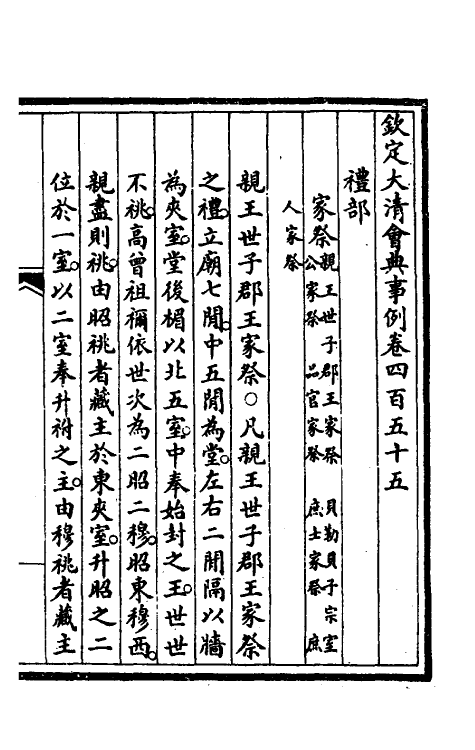 欽定大清會典事例卷四百五十五
禮部
家祭親王世子郡王家祭 貝勒貝子宗室
公家祭 品官家祭 庶士家祭 庶
人家祭
親王世子郡王家祭○凡親王世子郡王家祭
之禮。立廟七閒。中五閒為堂。左右二閒隔以牆
為夾室。堂後楣以北五室。中奉始封之王。世世
不祧。高曾祖禰依世次為二昭二穆。昭東穆西。
親盡則祧。由昭祧者藏主於東夾室。升昭之二
位於一室。以二室奉升祔之主。由穆祧者藏主